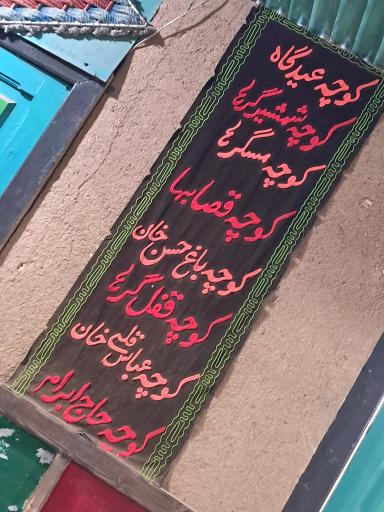 کوچه عیدگاه
کوچه شمشیرگرها
کوچه مسگرها
کوچه قصابها
کوچه باغ حسن خان
کوچه قفل گرها
کوچه عباس قلی خان
کوچه حاج ابرار